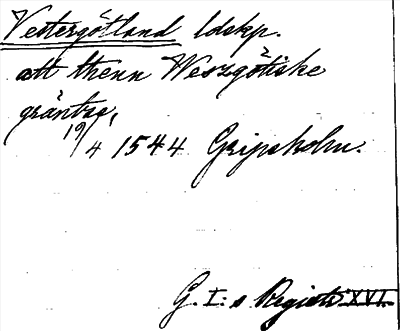 Vestergötland ldskp.
att thenn Weszgötiske
gräntse,
19/4 1544 Gripsholm.
G. I:s Registr XVI.